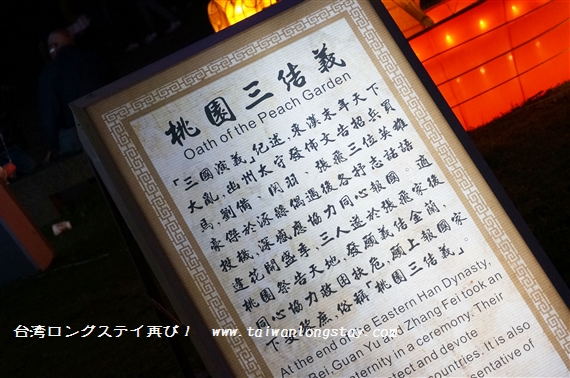 桃園三結義
Oath of the Peach Garden
「三國演義」紀述，東漢末年天下
大亂，幽州太守發佈文告招兵買
馬，劉備、關羽、張飛三位英雄
豪傑於涿縣偶遇後各抒志話語
投機，深感應協力同心報國。適
逢花開盛季，三人遂於張飛家後
桃園祭告天地，發願義結金蘭，
同心協力救困扶危，願上報國家
下安黎庶，俗稱「桃園三結義」。
At the end of the Eastern Han Dynasty,
Bei, Guan Yu and Zhang Fei took an
in a ceremony. Their
and devote
countries. It is also
of
台湾ロングステイ再び！ www.taiwanlongstay.com